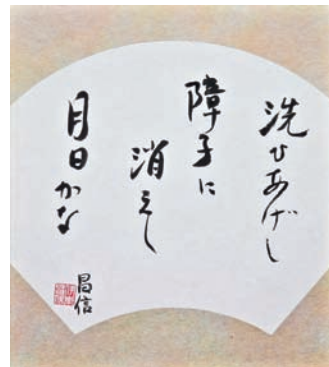 洗ひあげし
障子に
消えし
月日かな
昌信